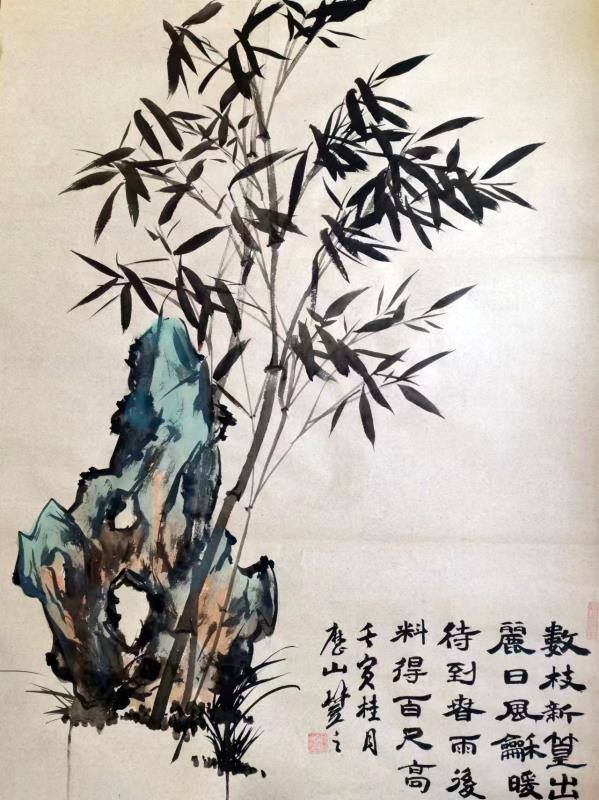 數枝新篁出
麗日風龢暖
待到春雨後
料得百尺高
壬寅桂月
歷山之